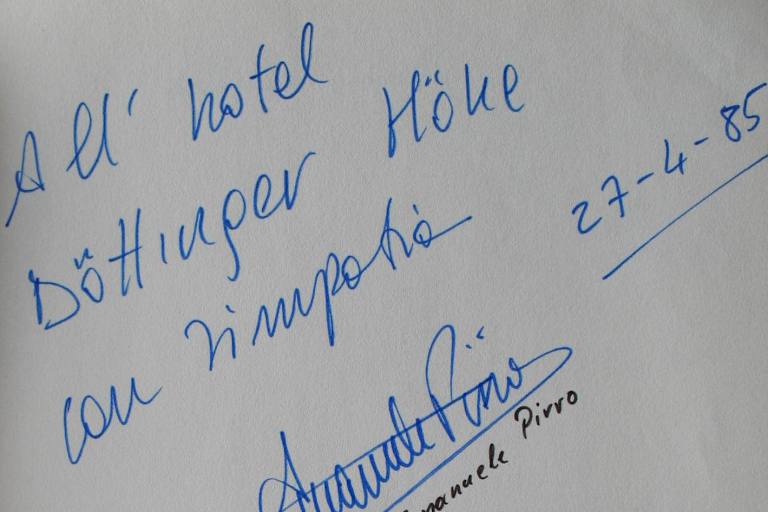 All' hotel
Döttinger Höhe
con simpatia
27-4-85
Emanuele Pirro
manuele Pirro